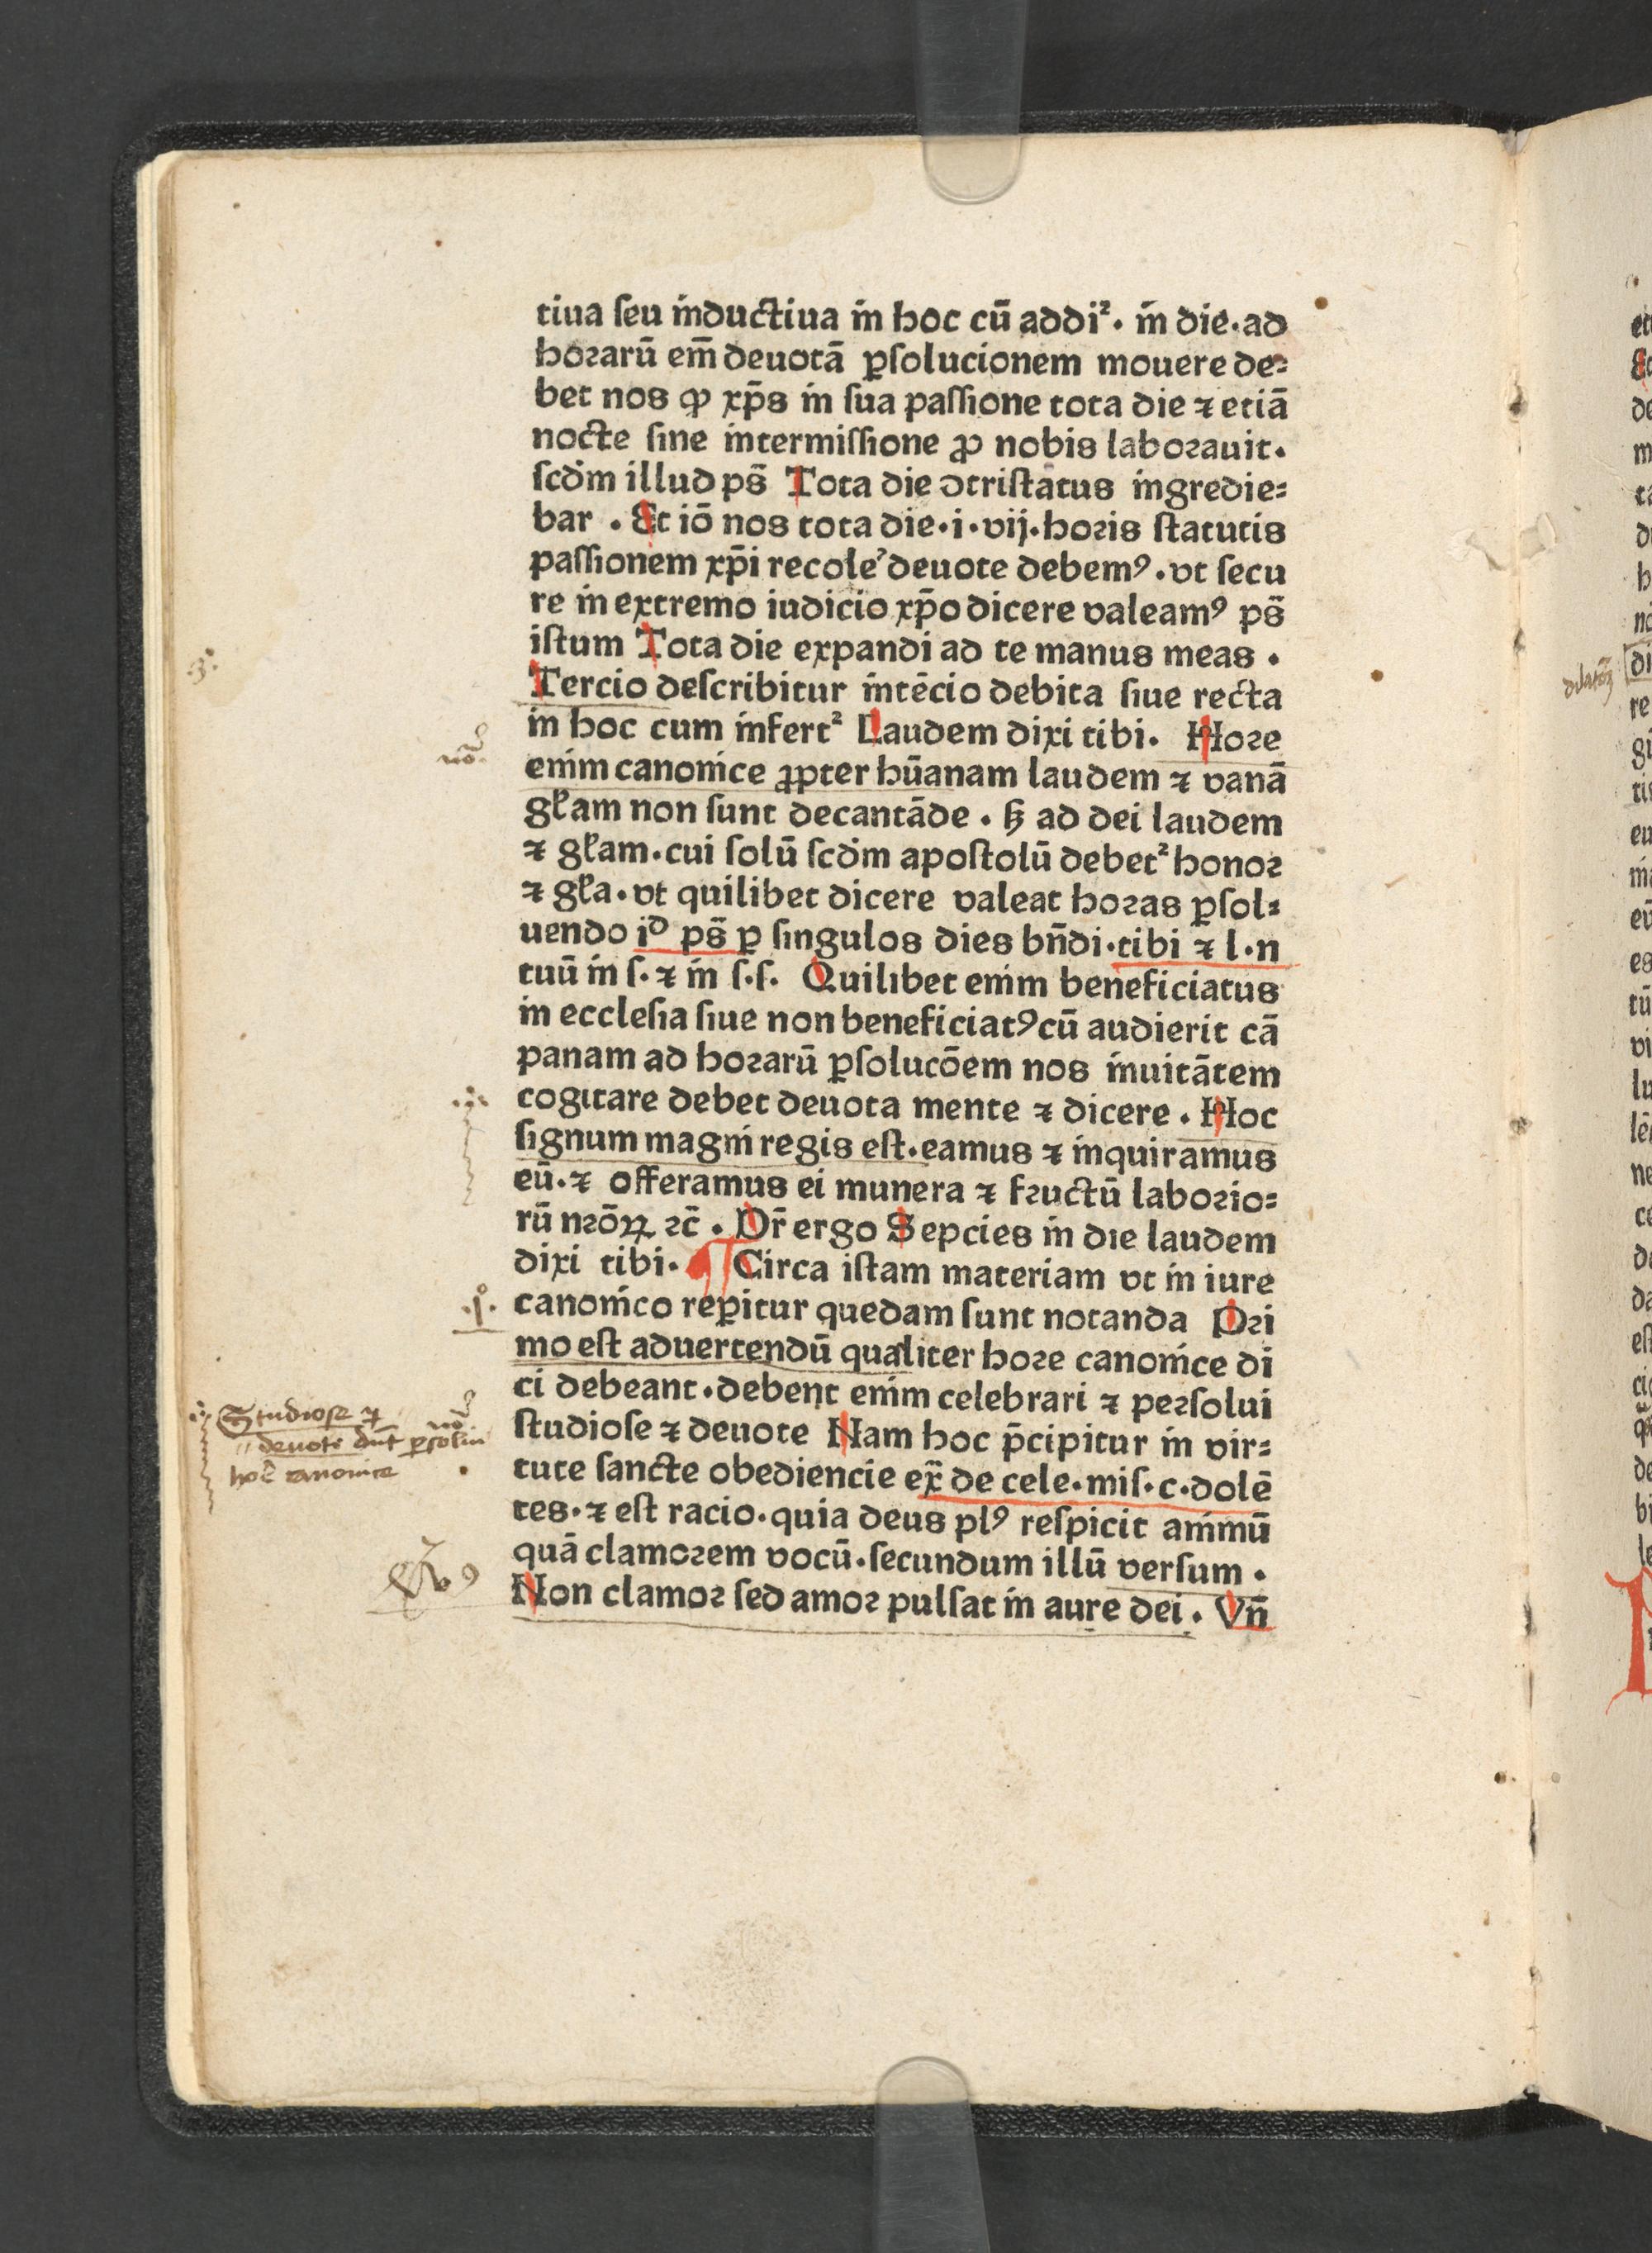 tiua ſeu inductiua in hoc cū addiꝛ. in die.ad
hoꝛarū em̄ deuotā ꝑſolucionem mouere de⸗
bet nos ꝙ xp̄s in ſua paſſione tota die ⁊ etiā
nocte ſine intermiſſione ꝓ nobis laboꝛauit.
ſcd̛m illud ps̄ Tota die ↄtriſtatus ingredie⸗
bar . Et iō nos tota die.i.vij.hoꝛis ſtatutis
paſſionem xp̄i recole᷑ deuote debemꝰ.vt ſecu
re in extremo iudicio xp̄o dicere valeamꝰ ps̄
iſtum Tota die expandi ad te manus meas .
.3.
Tercio deſcribitur intēcio debita ſiue recta
in hoc cum infertꝛ Laudem dixi tibi. Hoꝛe
no.
enim canonice ꝓpter hūanam laudem ⁊ vanā
gl̄am non ſunt decantāde . ſꝫ ad dei laudem
⁊ gl̄am.cui ſolū ſcd̛m apoſtolū debetꝛ honoꝛ
⁊ gl̄a.vt quilibet dicere valeat hoꝛas ꝑſol⸗
uendo iᵈ ps̄ ꝑ ſingulos dies bn̄di.tibi ⁊ l.n
tuū in ſ.⁊ in ſ.ſ. Quilibet enim beneficiatus
in eccleſia ſiue non beneficiatꝰ cū audierit cā
panam ad hoꝛarū ꝑſolucōem nos inuitātem
cogitare debet deuota mente ⁊ dicere . Hoc
ſignum magni regis eſt.eamus ⁊ inquiramus
eū.⁊ offeramus ei munera ⁊ fꝛuctū laboꝛio⸗
rū nꝛōꝝ ꝛc̄ . Dr̄ ergo Sepcies in die laudem
dixi tibi. ¶ Circa iſtam materiam vt in iure
.1.
canonico reꝑitur quedam ſunt notanda Pꝛi
mo eſt aduertendū qualiter hoꝛe canonice di
ci debeant.debent enim celebrari ⁊ peꝛſolui
Studioſe ⁊
deuote dn̄t ꝑſolui
hoē canonice
no.
ſtudioſe ⁊ deuote Nam hoc p̄cipitur in vir⸗
tute ſancte obediencie ex̄ de cele.miſ.c.dolē
tes.⁊ eſt racio.quia deus plꝰ reſpicit animū
quā clamoꝛem vocū.ſecundum illū verſum .
Non clamoꝛ ſed amoꝛ pulſat in aure dei . Vn̄